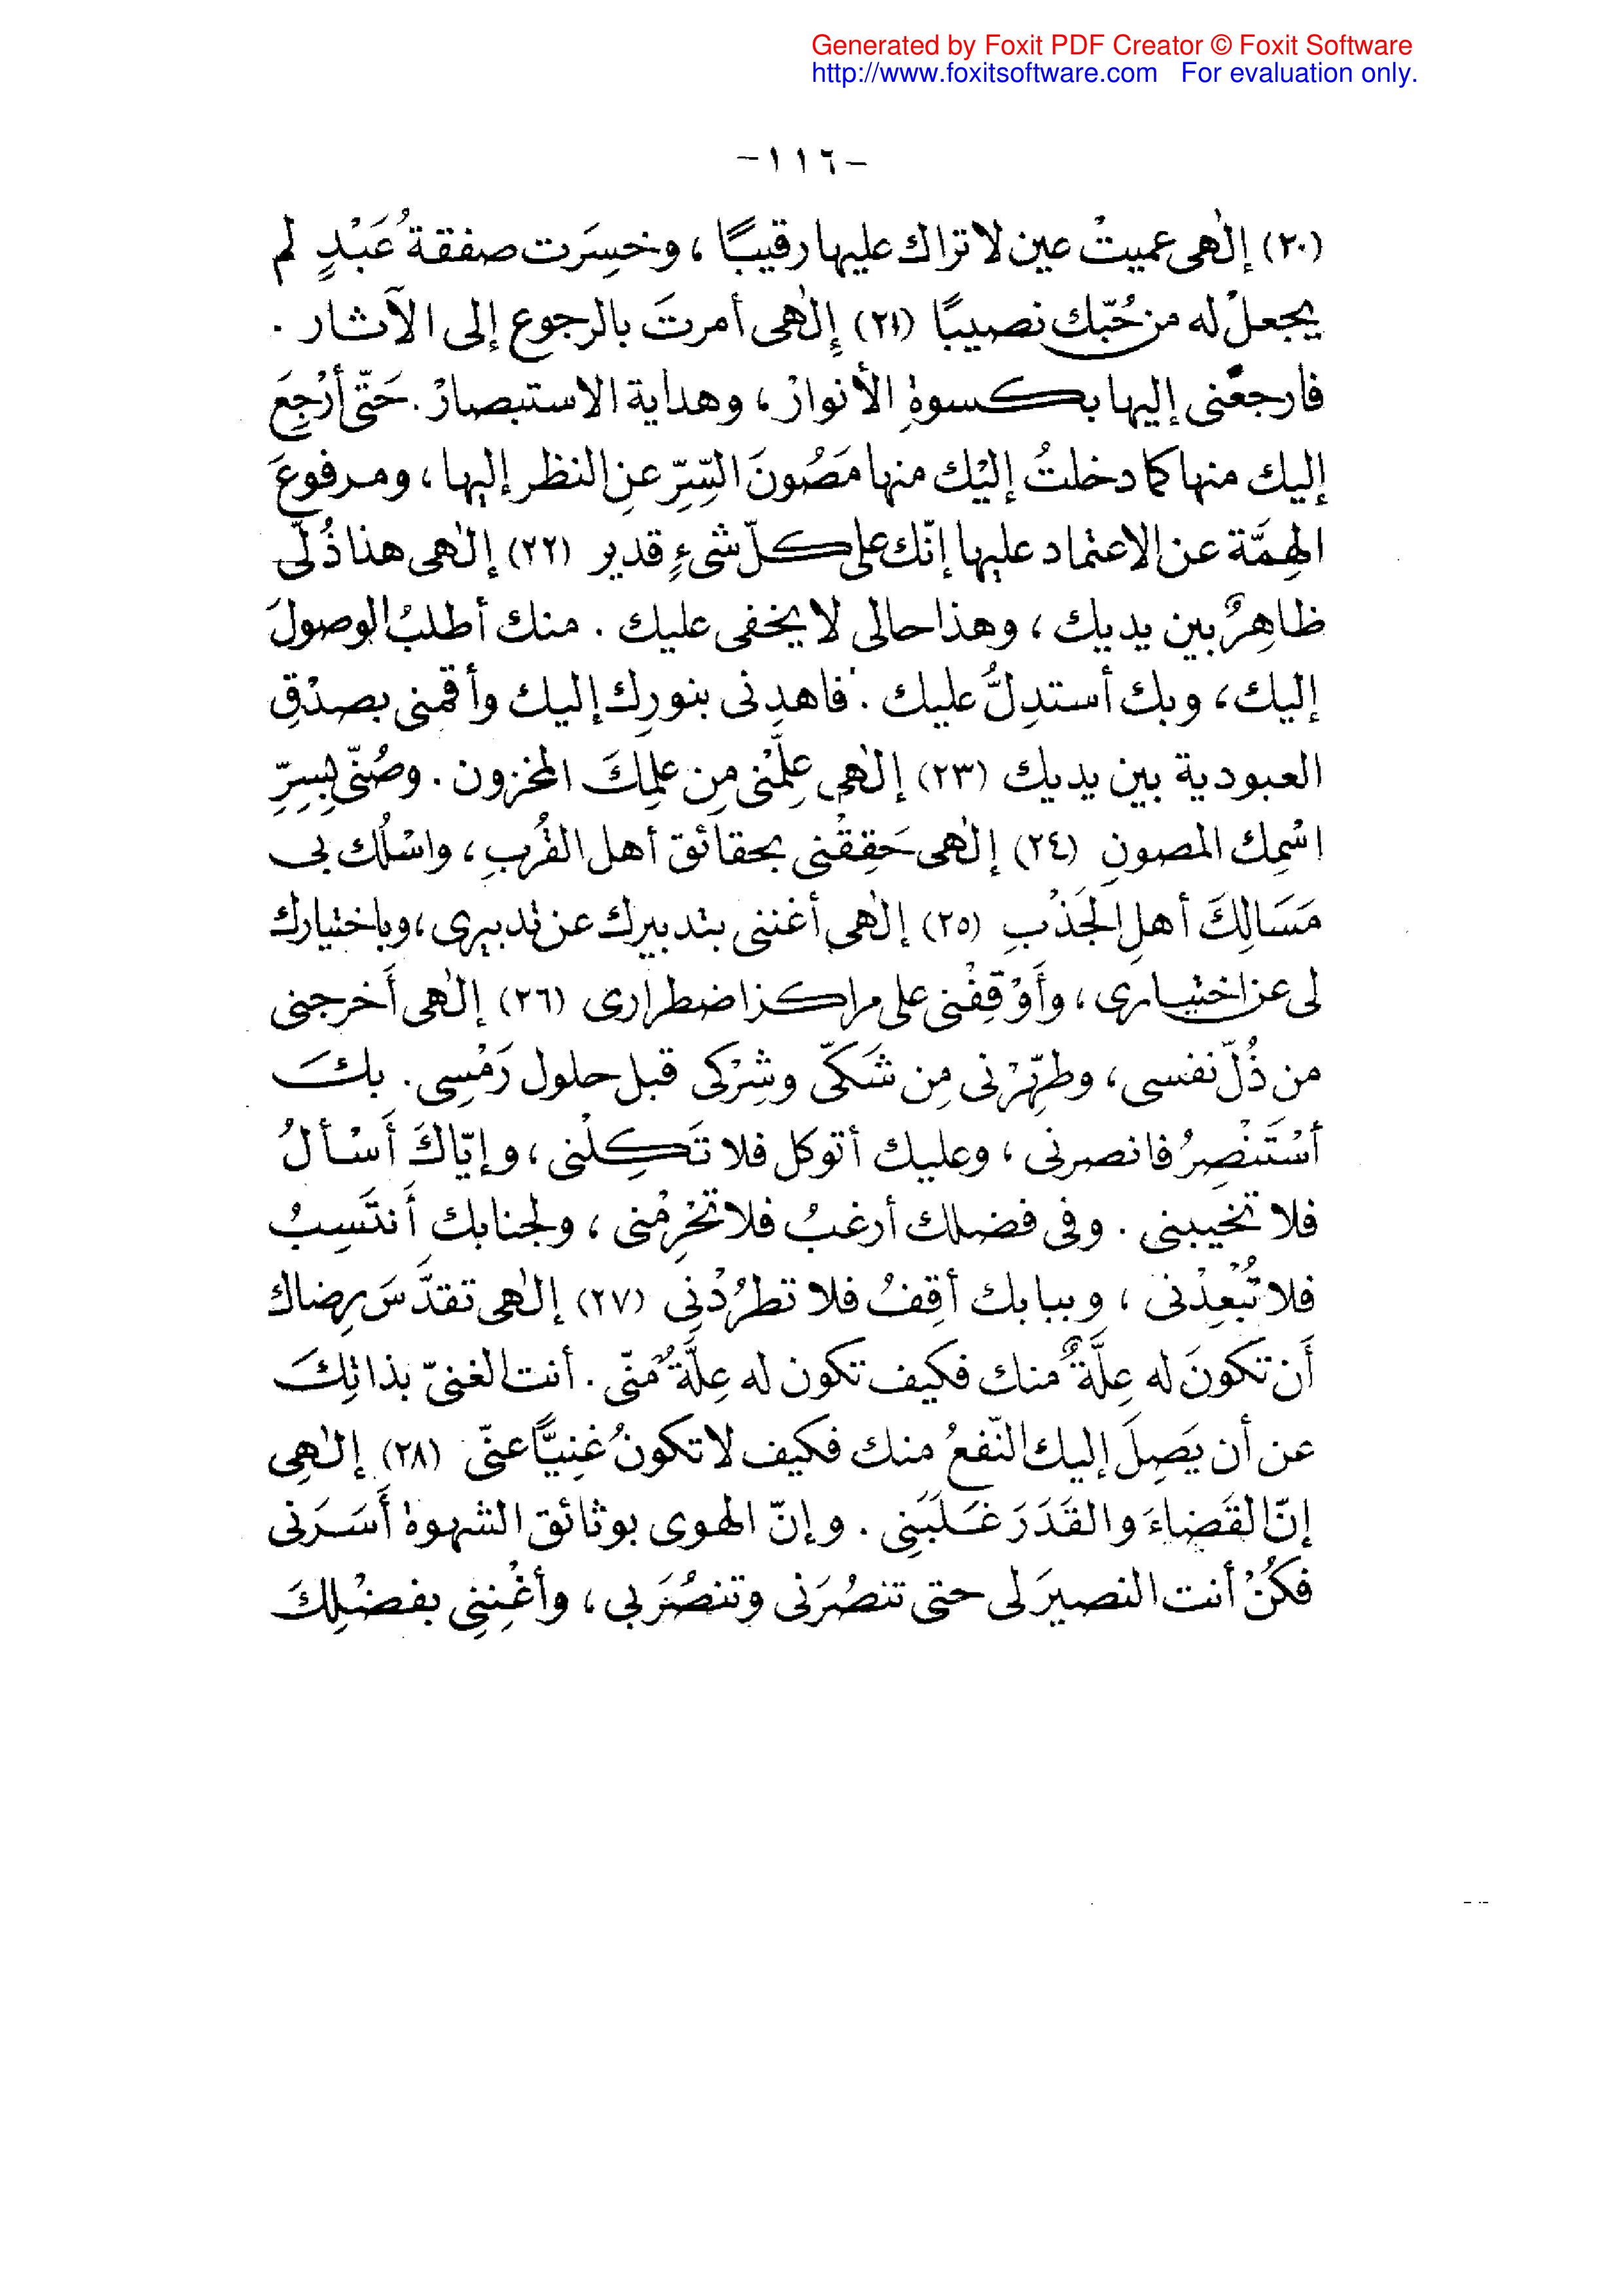 Generated by Foxit PDF Creator © Foxit Software
http://www.foxitsoftware.com For evaluation only.
-١١٦-
(٢٠) إلٰهى عميتْ عين لا تراك عليها رقيبًا ، وخسِرَت صفقةُ عَبْدٍ لم
يجعلْ له من حُبّك نصيبًا (٢١) إلٰهى أمرتَ بالرجوع إلى الآثار .
فارجعْنى إليها بكسوةِ الأنوارْ ، وهداية الاستبصارْ . حَتّى أرْجِعَ
إليك منها كما دخلتُ إليْك منها مَصُونَ السِّرِّ عنِ النظر إليها ، ومرفوعَ
الهِمَّة عن الاعتماد عليها إنّك على كلّ شىءٍ قدير (٢٢) إلٰهى هذا ذُلّى
ظاهِرٌ بين يديك ، وهذا حالى لا يخفى عليك . منك أطلبُ الوصولَ
إليك ، وبك أستدِلُّ عليك . فاهدِنى بنورِك إليك وأقمنى بصدْقِ
العبودية بين يديك (٢٣) إلٰهى علِّمْنى مِن علمِكَ المخزون . وصُنّى بِسِرِّ
اسْمِك المصونِ (٢٤) إلٰهى حَقِقْنى بحقائق أهل القُربِ ، واسْلُك بى
مَسَالِكَ أهلِ الجَذْبِ (٢٥) إلٰهى أغننى بتدبيرك عن تدبيرى ، وباختيارك
لى عن اختيارى ، وأَوْقِفْنى على مراكز اضطرارى (٢٦) إلٰهى أَخرجنى
من ذُلّ نفسى ، وطهِّرْنى مِن شَكّى وشِرْكى قبل حلول رَمْسِى . بكَ
أسْتَنْصِرُ فانصرنى ، وعليك أتوكل فلا تَكِلْنى ، وإيّاكَ أَسْألُ
فلا تخيبنى . وفى فضلك أرغبُ فلا تَحْرِمْنى ، ولجنابك أَنتَسِبُ
فلا تُبْعِدْنى ، وببابك أقِفُ فلا تطرُدْنِى (٢٧) إلٰهى تقدَّسَ رِضاك
أَن تكونَ له عِلَّةٌ منك فكيف تكون له عِلَّةٌ منّى . أنت الغنىّ بذاتِكَ
عن أن يَصِلَ إليك النّفعُ منك فكيف لا تكونُ غنِيًّا عنّى (٢٨) إلٰهِى
إنّ القَضاءَ والقَدَرَ غَلَبَنِى . وإنّ الهوى بوثائق الشهوة أَسَرَنى
فكُنْ أنت النصيرَ لى حتى تنصُرَنى وتنصُرَ بى ، وأغْنِنِى بفضْلِكَ